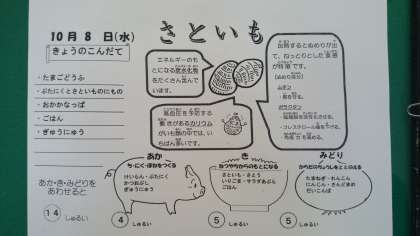 10月 8 日(水)
さといも
きょうのこんだて
・たまごどうふ
・ぶたにくとさといものにもの
・おかかなっぱ
・ごはん
・ぎゅうにゅう
エネルギーのも
とになる炭水化物
をたくさん含んで
います。
高血圧を予防する
働きがあるカリウム
がいも類の中では、い
ちばん多いです。
加熱するとぬめりが出
て、ねっとりとした食感
が特徴です。
あか・き・みどりを
あわせると
14 しゅるい
あか
ち・にく・ほねをつくる
けいらん・ぶたにく
かつおぶし
ぎゅうにゅう
4 しゅるい
き
ねつやちからのもとになる
さといも・さとう
ごはん
5 しゅるい
みどり
からだのちょうしをととのえる
たまねぎ・れんこん
にんじん・さんどまめ
だいこんば
5 しゅるい